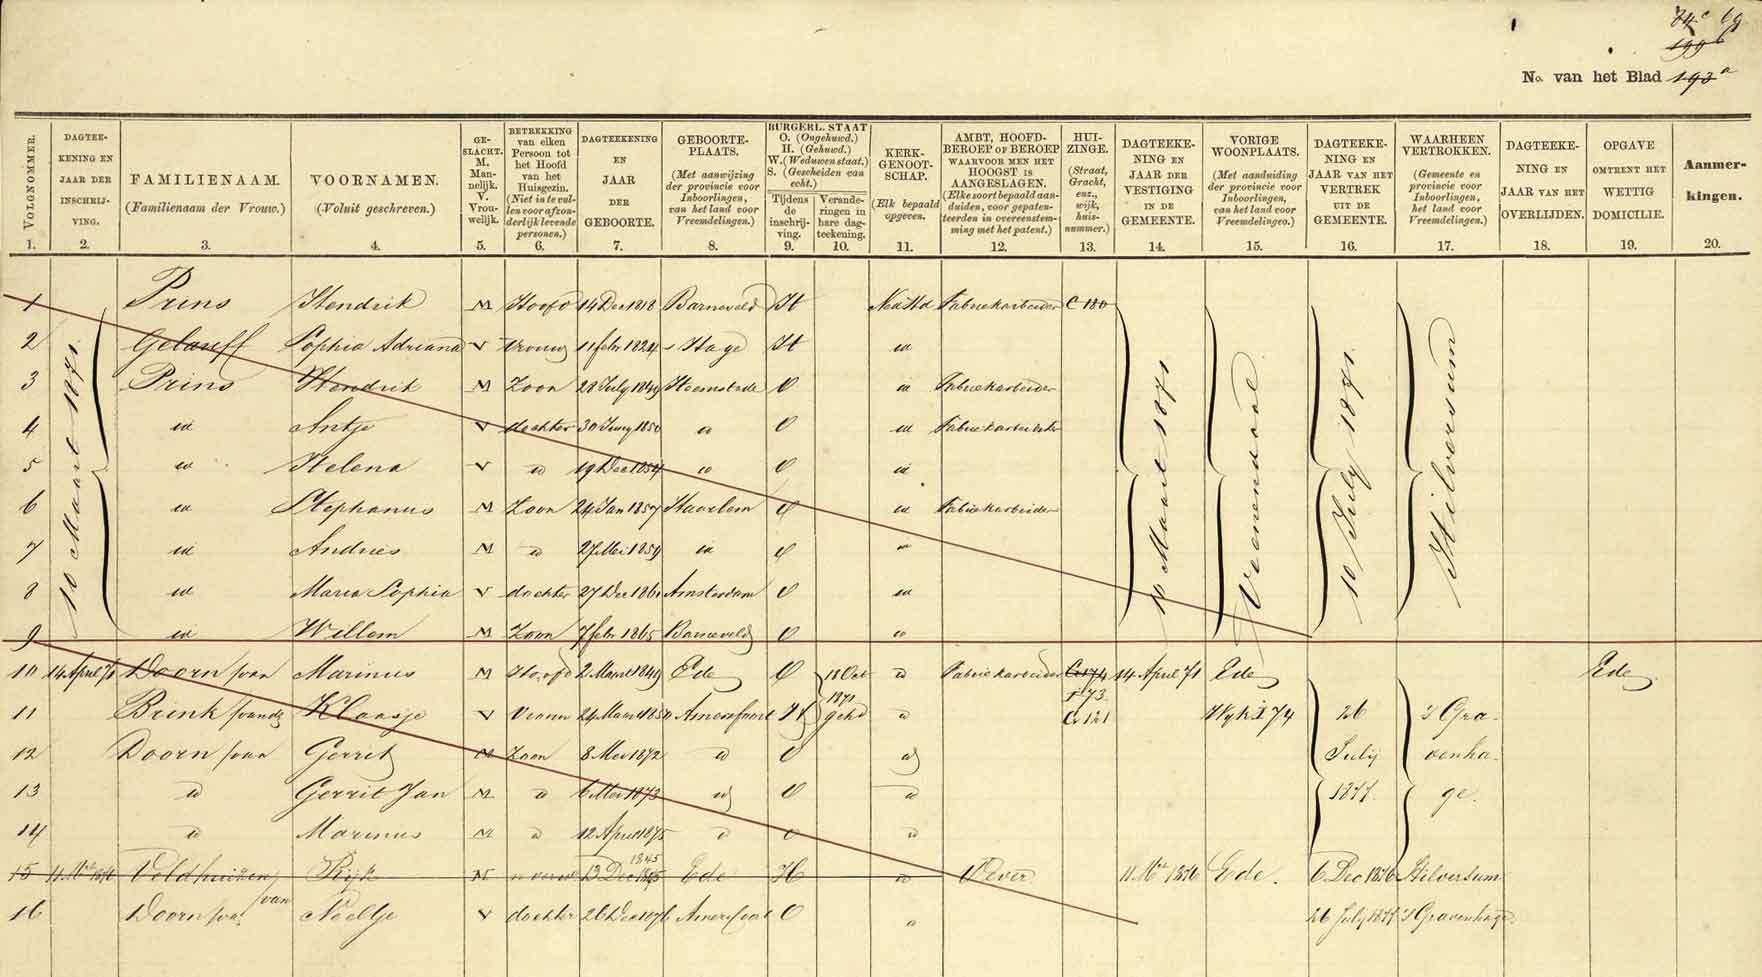 74c 69
199b
No. van het Blad 193a
VOLGNOMMER. 1.
DAGTEEKENING EN JAAR DER INSCHRIJVING. 2.
FAMILIENAAM. (Familienaam der Vrouw.) 3.
VOORNAMEN. (Voluit geschreven.) 4.
GESLACHT. M. Mannelijk. V. Vrouwelijk. 5.
BETREKKING van elken Persoon tot het Hoofd van het Huisgezin. (Niet in te vullen voor afzonderlijk levende personen.) 6.
DAGTEEKENING EN JAAR DER GEBOORTE. 7.
GEBOORTEPLAATS. (Met aanwijzing der provincie voor Inboorlingen, van het land voor Vreemdelingen.) 8.
BURGERL. STAAT O. (Ongehuwd.) H. (Gehuwd.) W. (Weduwenstaat.) S. (Gescheiden van echt.)
Tijdens de inschrijving. 9.
Veranderingen in hare dagteekening. 10.
KERKGENOOTSCHAP. (Elk bepaald opgeven.) 11.
AMBT, HOOFDBEROEP OF BEROEP WAARVOOR MEN HET HOOGST IS AANGESLAGEN. (Elke soort bepaald aanduiden, voor gepatenteerden in overeenstemming met het patent.) 12.
HUIZINGE. (Straat, Gracht, enz., wijk, huisnummer.) 13.
DAGTEEKENING EN JAAR DER VESTIGING IN DE GEMEENTE. 14.
VORIGE WOONPLAATS. (Met aanduiding der provincie voor Inboorlingen, van het land voor Vreemdelingen.) 15.
DAGTEEKENING EN JAAR VAN HET VERTREK UIT DE GEMEENTE. 16.
WAARHEEN VERTROKKEN. (Gemeente en provincie voor Inboorlingen, het land voor Vreemdelingen.) 17.
DAGTEEKENING EN JAAR VAN HET OVERLIJDEN. 18.
OPGAVE OMTRENT HET WETTIG DOMICILIE. 19.
Aanmerkingen. 20.
10 Maart 1871.
1 Prins Hendrik M Hoofd 14 Dec 1818 Barneveld H Ned Hd Fabriekarbeider C 180
2 Gelauff Sophia Adriana V Vrouw 11 febr 1824 s Hage H id
3 Prins Hendrik M Zoon 28 July 1849 Heemstede O id Fabriekarbeider
4 id Antje V dochter 30 Juny 1850 id O id Fabriekarbeidster
5 id Helena V id 19 Dec 1854 id O id
6 id Stephanus M Zoon 24 Jan 1857 Haarlem O id Fabriekarbeider
7 id Andries M id 27 Mei 1859 id O id
8 id Maria Sophia V dochter 27 Dec 1861 Amsterdam O id
9 id Willem M Zoon 7 febr 1865 Barneveld O id
10 Maart 1871 Veenendaal 10 July 1871. Hilversum
10 14 April 71 Doorn van Marinus M Hoofd 2 Maart 1849 Ede O 18 Oct id Fabriekarbeider C 174 14 April 71 Ede Ede
1871 I 73
11 Brink van de Klaasje V Vrouw 24 Maart 1850 Amersfoort H gehd id C 121 Wyk I 74 26 's Gra-
12 Doorn van Gerrit M Zoon 8 Mei 1872 id O id July venha-
13 id Gerrit Jan M id 6 Mei 1873 id O id 1877. ge.
14 id Marinus M id 12 April 1875 id O id
1845
15 11 Mrt 1876 Veldhuizen van Rijk M 13 Dec 1845 Ede H id Wever 11 Mrt 1876 Ede. 6 Dec 1876 Hilversum
16 Doorn van Neeltje V dochter 26 Dec 1876 Amersfoort O id 26 July 1877 's Gravenhage